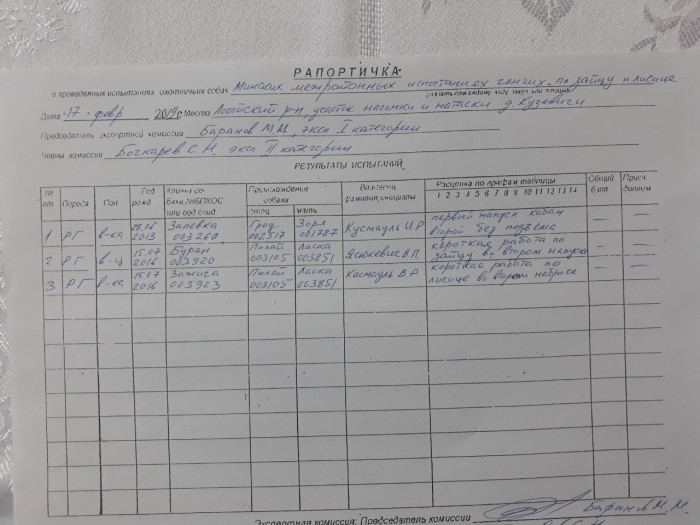 РАПОРТИЧКА
о проведенных испытаниях охотничьих собак Минских межрайонных испытаниях гончих по зайцу и лисице
Дата 17 февр 2019г Место Логойский р-н, участок нагонки и натаски д. Кузевичи
Председатель экспертной комиссии Баранов М.М, эксп I категории
Члены комиссии Бочкарев С.Н. эксп II категории
РЕЗУЛЬТАТЫ ИСПЫТАНИЙ
№ пп Порода Пол Год рожд Происхождение собаки Владелец фамилия, инициалы Расценка по графам таблицы Общий балл Прис. диплом
отец мать 1 2 3 4 5 6 7 8 9 10 11 12 13 14
1 РГ в-ка 28.06 2013 Запевка 003260 Град 002517 Заря 001787 Кусмауль И.Р первый напуск кабан второй без подъема — —
2 РГ в-ц 15.07 2016 Буран 003920 Пилай 003105 Ласка 003851 Яснюкевич В.П. короткая работа по зайцу во втором напуске — —
3 РГ в-ка 15.07 2016 Зажига 003923 Пилай 003105 Ласка 003851 Космауль В.Р короткая работа по лисице во втором набросе — —
Экспертная комиссия: Председатель комиссии Баранов М.М.